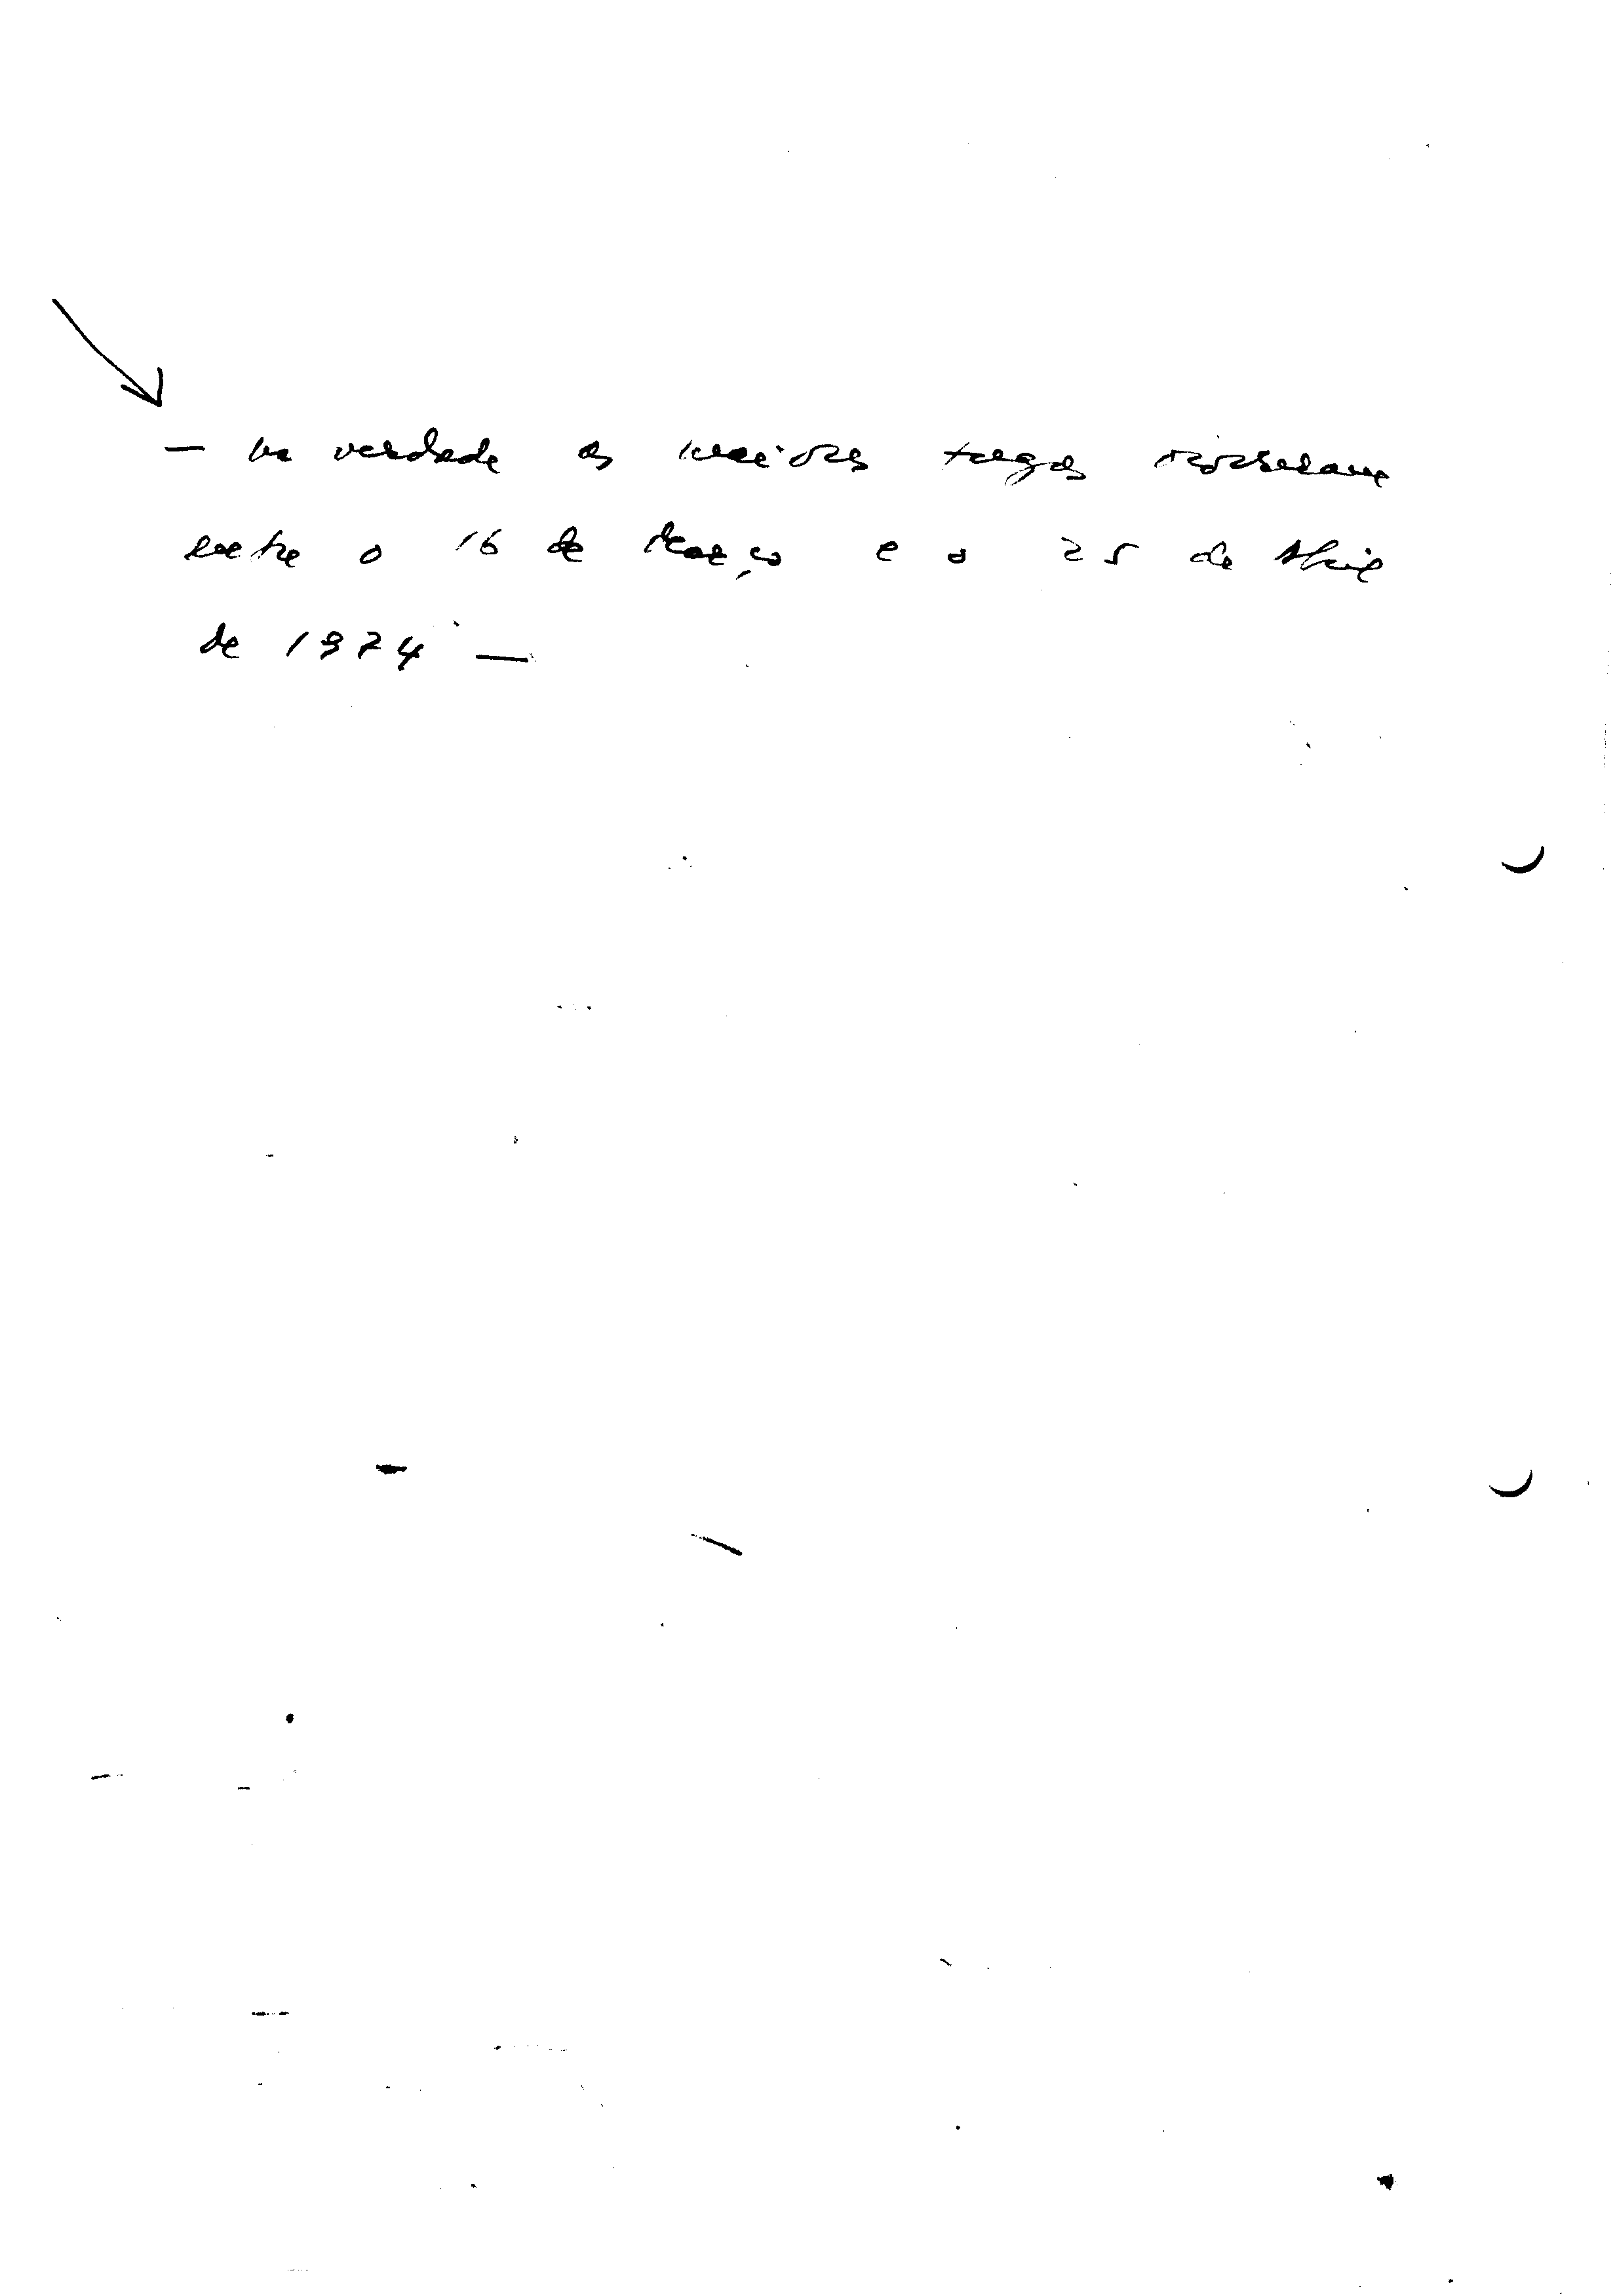 — na verdade as maiores fugas ocorreram
entre o 16 de Março e o 25 de Abril
de 1974 —